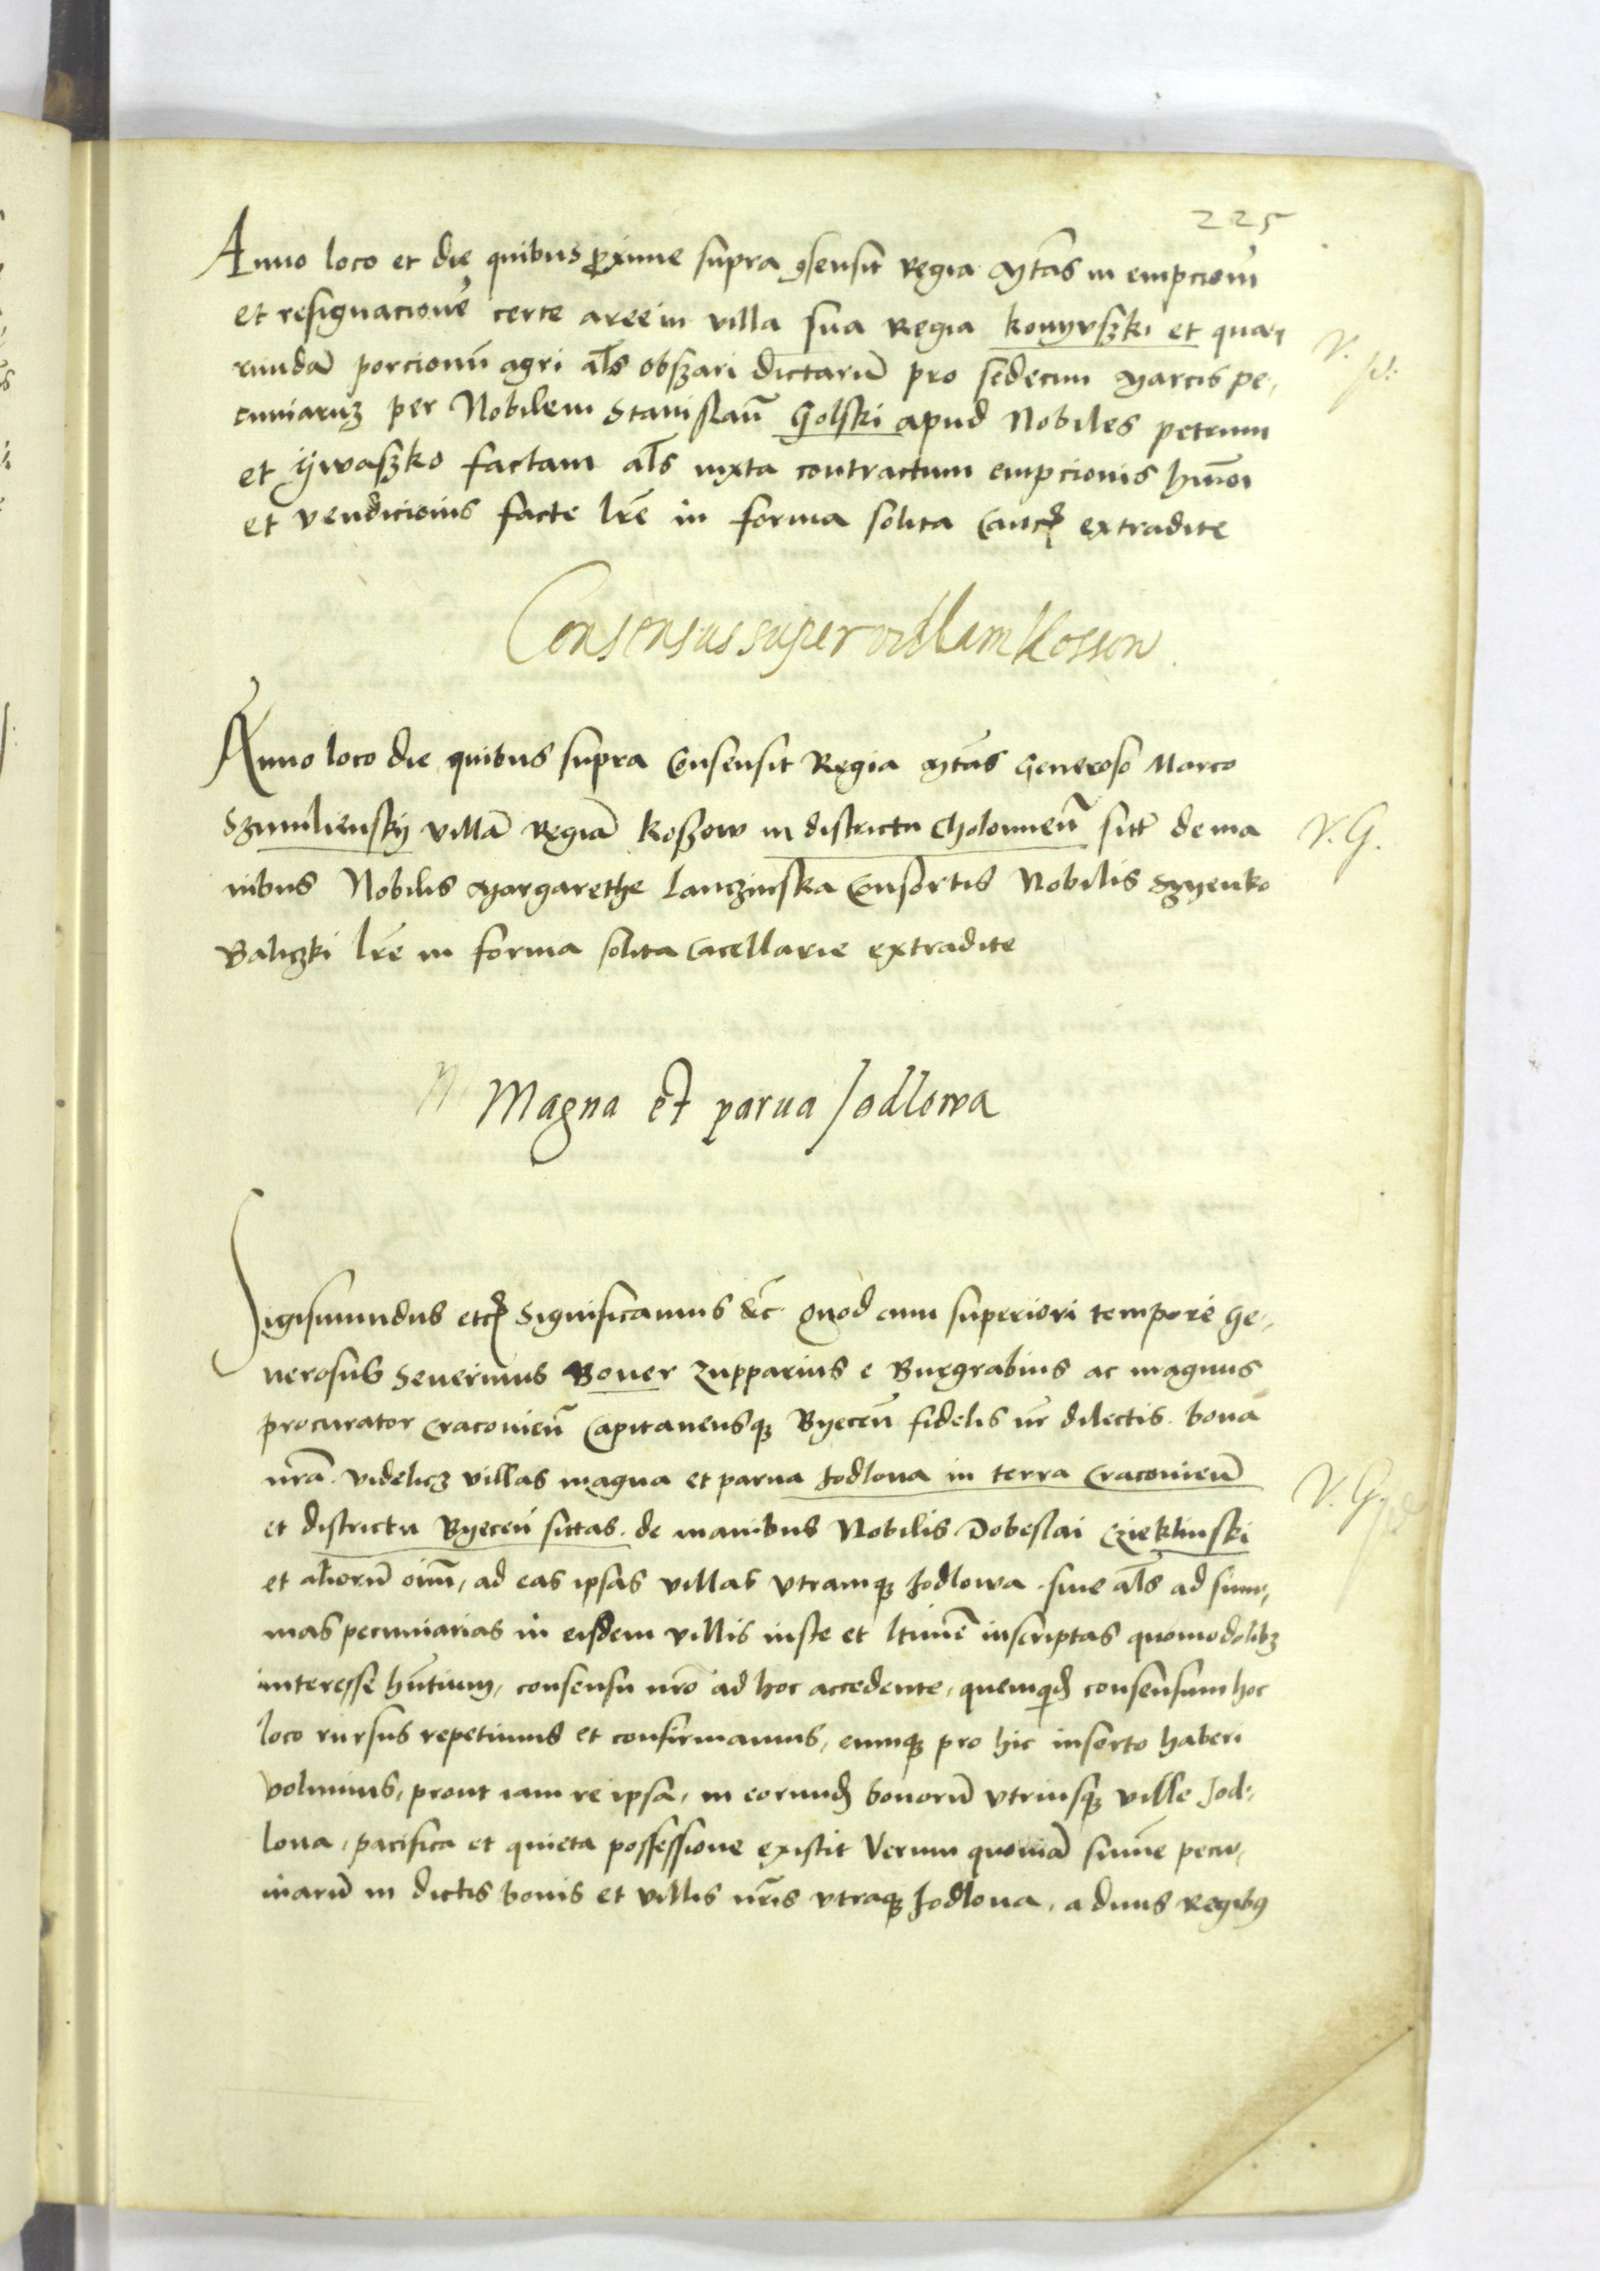 225
Anno loco et die quibus ꝓxime supra ꝯsensit Regia Mtãs in empcionẽ
et resignacionẽ certe aree in villa sua Regia Konyvszki et quar
rundã porcionũ agri als̃ obszari dictarũ pro sedecim Marcis pe,
cuniarum per Nobilem Stanislaũ Golski apud Nobiles petrum
et Iẏwaszko factam als̃ iuxta contractum empcionis hmõi
et vendicionis facte lrẽ in forma solita Canc̃ extradite
Consensus super villam Kossow
Anno loco die quibus supra Consensit Regia Mtãs Generoso Marco
Szumlienskÿ villã Regiã Koszow in districtu Cholomien̄ sitt̄ de ma
nibus Nobilis Margarethe Lanczinska Consortis Nobilis Szyenko
Baliczki lrẽ in forma solita Cãcellarie extradite
Magna et parua Jodlowa
Sigismundus etc̃ Significamus &c̃ Quod cum superiori tempore Ge,
nerosus Seuerinus Boner Zupparius e Burgrabius ac magnus
procurator Cracovien̄ Capitaneusqȝ Byecen̄ fidelis nr̃ dilectis. bona
nrã. videlicȝ villas magna et parua Jodlova in terra Cracovien̄
et districtu Byecen̄ sittas. de manibus Nobilis Dobeslai Czieklinski
et aliorũ oim̃, ad eas ipsas villas vtramqȝ Jodlowa siue als̃ ad sum,
mas pecuniarias in eisdem villis iuste et ltimẽ inscriptas quomodolibȝ
interesse hñtium, consensu nrõ ad hoc accedente, quemqͥdẽ consensum hoc
loco rursus repetimus et confirmamus, eumqȝ pro hic inserto haberi
volumus, prout iam re ipsa, in eorundẽ bonorũ vtriusqȝ ville Jod,
lova, pacifica et quieta possessione existit Verum quoniã summẽ pecu,
niarũ in dictis bonis et villis nrĩs vtraqȝ Jodlova, a diuis Regibꝯ
V. G.
V. G.